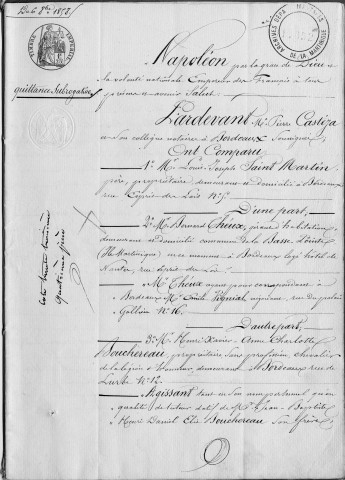 Du 6 8bre 1858
TIMBRE IMPERIAL
ARCHIVES DEPARTEMENTALES DE LA MARTINIQUE
quittance Subrogative
Napoléon par la grace de Dieu et
la volonté nationale Empereur des Français à tous
présens et avenir Salut.
Pardevant Me Pierre Castéja
et son collègue notaires à Bordeaux soussignés
Ont Comparu
1° Mr Louis Joseph Saint Martin
père, propriétaire, demeurant et domicilié à Bordeaux
rue
D'une part,
2° Mr Bernard Thieux, grand habitation
demeurant et domicilié commune de la Basse Pointe
(Martinique) et en ce moment à Bordeaux logé hôtel de
Nantes, rue Esprit des Lois
Mr Thieux ayant pour correspondant à
Bordeaux Mr Emile Vignial négociant, rue du palais
Gallien N° 16.
D'autre part,
3° Mr Henri Xavier Anne Charlotte
Bouchereau, propriétaire sans profession, chevalier
de la légion d'honneur, demeurant à Bordeaux rue de
Lurbe N° 12.
Agissant tant en son nom personnel qu'en
qualité de tuteur datif de Mr Jean Baptiste
Henri Daniel Elie Bouchereau son frère